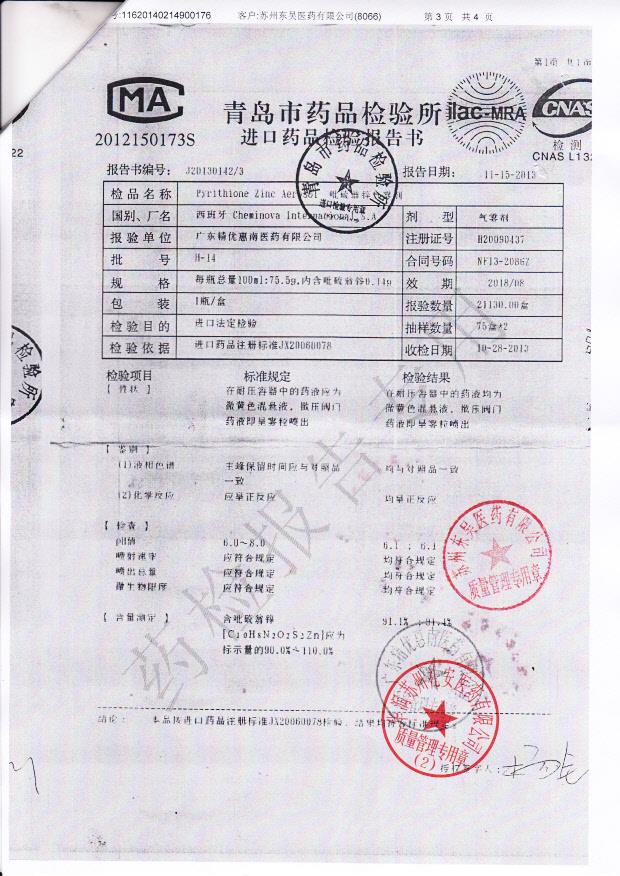 号:11620140214900176 客户:苏州东吴医药有限公司(8066) 第 3 页 共 4 页
第1页 共1页
MA
2012150173S
青岛市药品检验所
进口药品检验报告书
ilac-MRA
CNAS
检 测
CNAS L132
22
报告书编号: J20130142/3 报告日期: 11-15-2013
检品名称 Pyrithione Zinc Aerosol
国别、厂名 西班牙 Cheminova International,S.A 剂 型 气雾剂
报验单位 广东精优惠南医药有限公司 注册证号 H20090437
批 号 H-14 合同号码 NF13-2086Z
规 格 每瓶总量100ml:75.5g,内含吡硫翁锌0.14g 效 期 2018/08
包 装 1瓶/盒 报验数量 21130.00盒
检验目的 进口法定检验 抽样数量 75盒*2
检验依据 进口药品注册标准JX20060078 收检日期 10-28-2013
检验项目 标准规定 检验结果
【 性状 】 在耐压容器中的药液应为 在耐压容器中的药液均为
微黄色混悬液, 揿压阀门 微黄色混悬液, 揿压阀门
药液即呈雾粒喷出 药液即呈雾粒喷出
【 鉴别 】
(1)液相色谱 主峰保留时间应与对照品 均与对照品一致
一致
(2)化学反应 应呈正反应 均呈正反应
【 检查 】
pH值 6.0~8.0 6.1 ; 6.1
喷射速率 应符合规定 均符合规定
喷出总量 应符合规定 均符合规定
微生物限度 应符合规定 均符合规定
【 含量测定 】 含吡硫翁锌 91.1% ;91.4%
[C10H8N2O2S2Zn]应为
标示量的90.0%~110.0%
结论: 本品按进口药品注册标准JX20060078检验, 结果均符合标准规定
授权签字人:
青岛市药品检验所
进口检验专用章
检验所
苏州东吴医药有限公司
质量管理专用章
质量管理专用章
(2)
药检报告专用